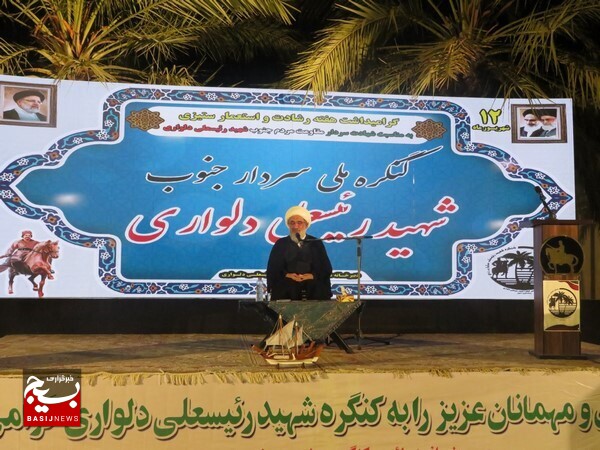 گرامیداشت هفته رشادت و استعمار ستیزی
به مناسبت شهادت سردار مقاومت مردم جنوب شهید رئیسعلی دلواری
۱۲
شهریورماه
کنگره ملی سردار جنوب
شهید رئیسعلی دلواری
و مهمانان عزیز را به کنگره شهید رئیسعلی دلواری
خبرگزاری
بسیج
BASIJNEWS